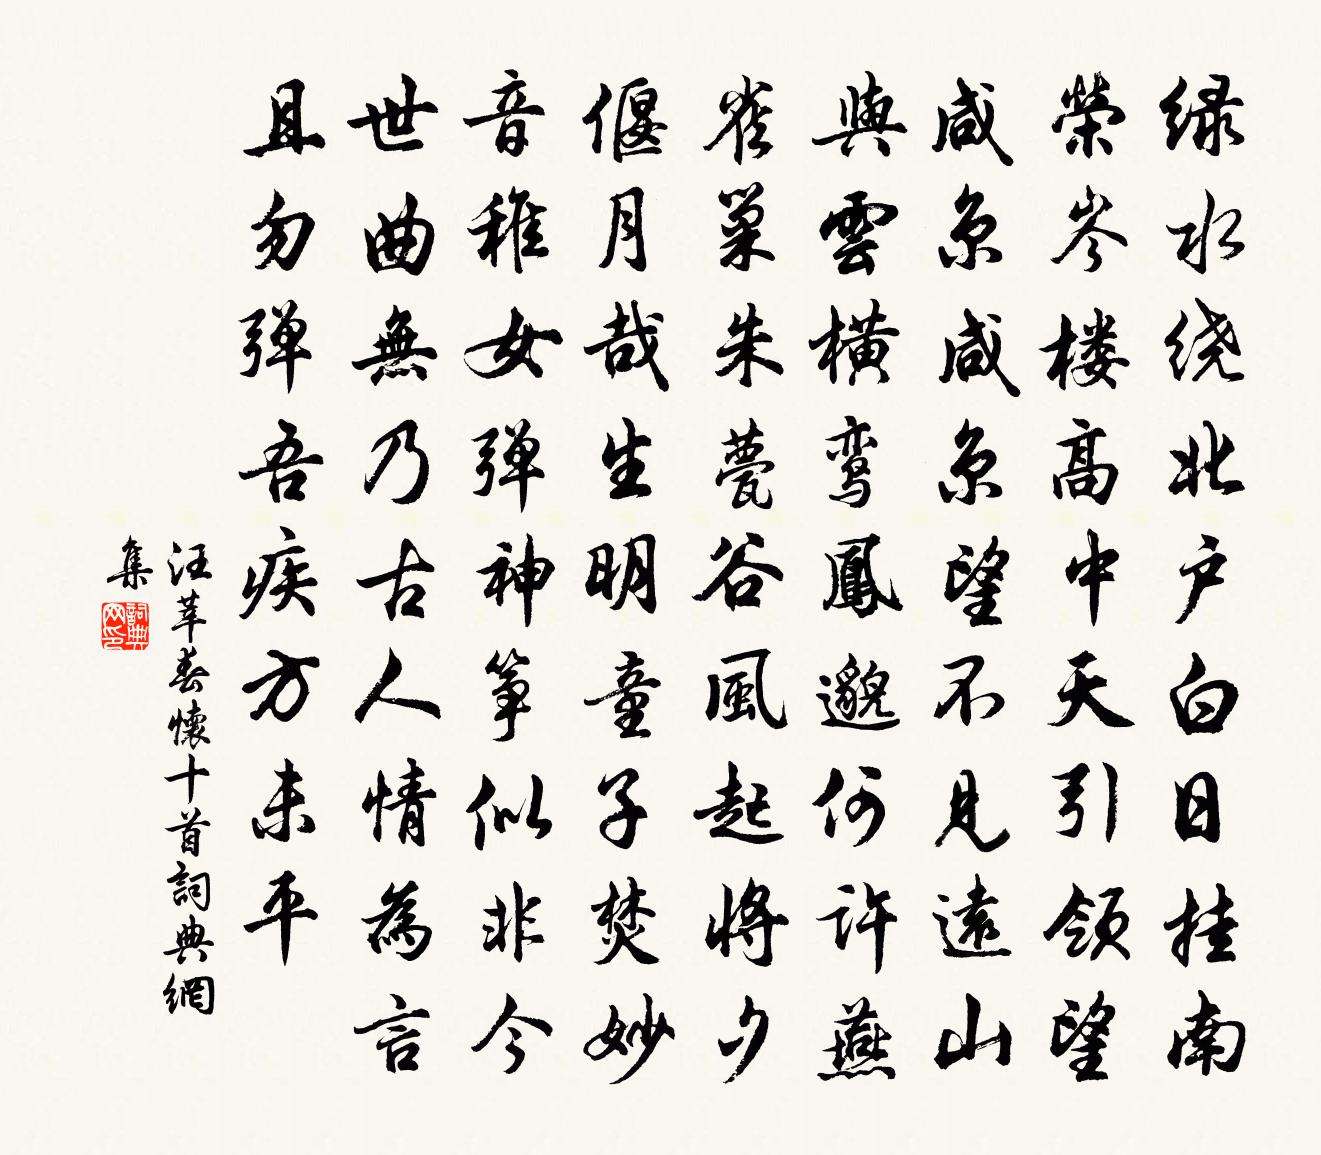 绿水绕北户白日挂南
榮岑楼高中天引领望
咸京咸京望不见遠山
與雲橫鸾鳳邈何許燕
雀巢朱甍谷風起将夕
偃月哉生明童子焚妙
音稚女弹神筝似非今
世曲無乃古人情為言
且勿弹吾疾方未平
汪莘春懷十首詞典網
集
詞典网印